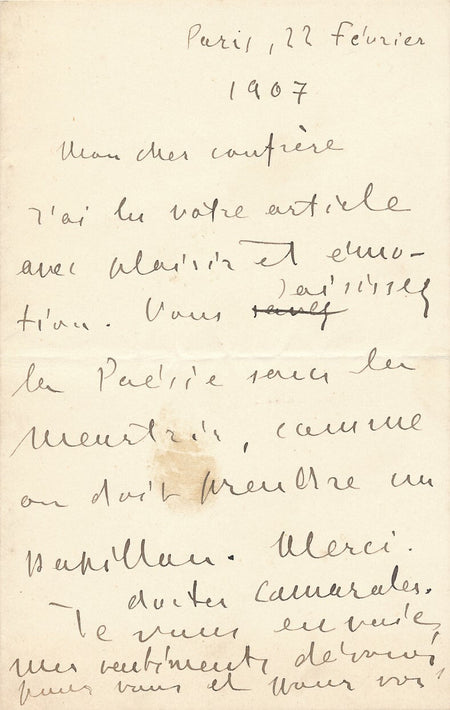 Paris, 22 Février
1907
Mon cher confrère
J'ai lu votre article
avec plaisir et émo-
tion. Vous saisissez
la Poésie sans la
meurtrir, comme
on doit prendre un
papillon. Merci.
doctes camarades.
Je vous envoie,
mes sentiments dévoués
pour vous et pour vos